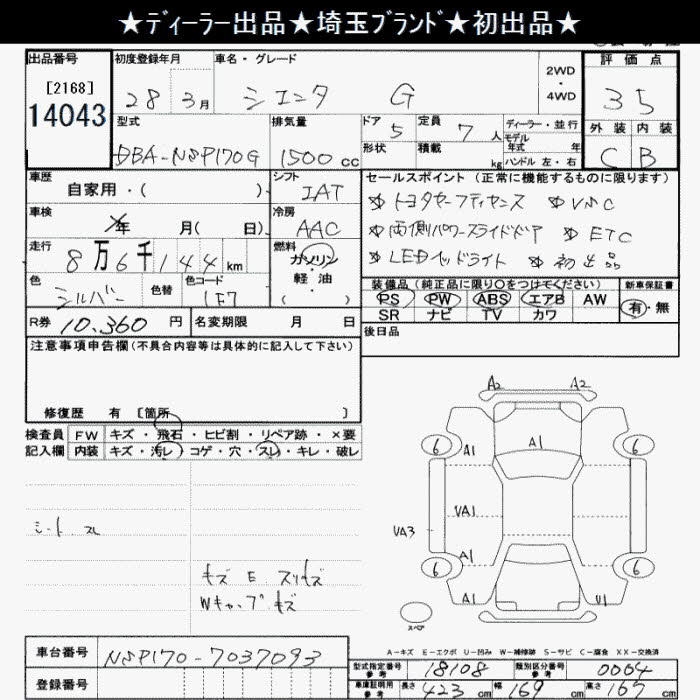 ★ディーラー出品★埼玉ブランド★初出品★
出品番号 初度登録年月 車名・グレード 評価点
[2168] 28 3月 シエンタ G 2WD・4WD 35
14043 型式 排気量 ドア 5 定員 7人 ディーラー・並行 外装 内装
DBA-NSP170G 1500cc 形状 積載 kg モデル年式 年 ハンドル 左・右 C B
車歴 自家用・( ) シフト IAT セールスポイント(正常に機能するものに限ります)
車検 年 月( 日) 冷房 AAC トヨタセーフティセンス VSC
走行 8万6千144km 燃料 ガソリン・軽油 両側パワースライドドア ETC
LEDヘッドライト 初出品
色 シルバー 色替 色コード 1F7 装備品(純正品に限り〇をつけてください) 新車保証書
PS PW ABS エアB AW 有・無
SR ナビ TV カワ
R券 10,360円 名変期限 月 日 後日品
注意事項申告欄(不具合内容等は具体的に記入して下さい)
修復歴 有 [箇所 ]
検査員 FW キズ・飛石・ヒビ割・リペア跡・×要
記入欄 内装 キズ・汚レ・コゲ・穴・スレ・キレ・破レ
シート スレ
キズ E スリキズ
Wキャップキズ
A2 A2
6 A1 A1 6
VA3 VA1
6 A1 6
A1 U1
スペア
A-キズ E-エクボ U-凹み W-補修跡 S-サビ C-腐食 XX-交換済
車台番号 NSP170-7037093
登録番号
型式指定番号 参考 18108 類別区分番号 参考 0004
車庫証明用 参考 長さ 423cm 幅 169cm 高さ 167cm